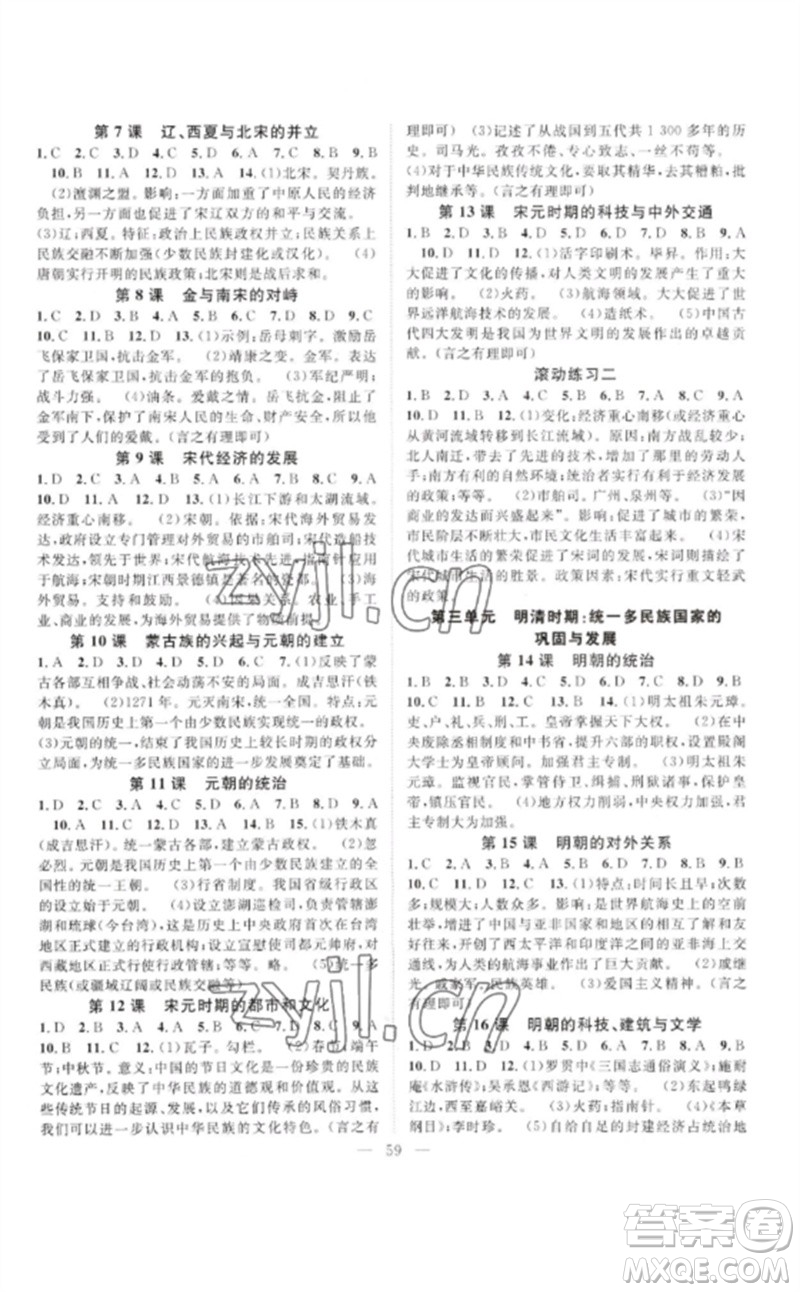 第 7 课 辽、西夏与北宋的并立
1. C 2. C 3. D 4. D 5. D 6. A 7. C 8. D 9. B
10. D 11. A 12. D 13. A 14. (1)北宋。契丹族。
(2)澶渊之盟。影响:一方面加重了中原人民的经济
负担,另一方面也促进了宋辽双方的和平与交流。
(3)辽;西夏。特征:政治上民族政权并立;民族关系
上民族交融不断加强(少数民族封建化或汉化)。 (4)
唐朝实行开明的民族政策;北宋则是战后求和。
第 8 课 金与南宋的对峙
1. C 2. C 3. C 4. D 5. C 6. D 7. B 8. D 9. A
10. C 11. D 12. D 13. (1)示例:岳母刺字。激励岳
飞保家卫国,抗击金军。 (2)靖康之耻。表达
了岳飞保家卫国、抗击金军的抱负。 (3)军纪严明;
战斗力强。 (4)油条。爱戴岳飞,岳飞抗金,阻止了
金军南下,保护了南宋人民的生命、财产安全,所以他
受到了人们的爱戴。(言之有理即可)
第 9 课 宋代经济的发展
1. D 2. C 3. C 4. A 5. C 6. A 7. D 8. C 9. D
10. D 11. A 12. D 13. (1)长江下游和太湖流域。
经济重心南移。 (2)宋朝。依据:宋代海外贸易发
达,政府设立专门管理对外贸易的市舶司;宋代造船技
术发达,领先于世界;宋代航海技术高,指南针应用
于航海;宋代时期江西景德镇是著名的瓷都。 (3)海
外贸易。为海外贸易的发展提供了物质基础。农业、手工
业、商业的
第 10 课 蒙古族的兴起与元朝的建立
1. D 2. D 3. A 4. D 5. C 6. A 7. C 8. B 9. D
10. C 11. D 12. C 13. A 14. A 15. (1)反映了蒙
古各部互相争战、社会动荡不安的局面。成吉思汗(铁
木真)。 (2)1271 年。元灭南宋,统一全国。特点:元
朝是我国历史上第一个由少数民族实现统一的政权。
(3)元朝的统一,结束了我国历史上较长时期的政权
分立局面,为统一多民族国家的进一步发展奠定了基础。
第 11 课 元朝的统治
1. D 2. C 3. B 4. D 5. D 6. C 7. C 8. D 9. A
10. A 11. D 12. C 13. D 14. B 15. (1)铁木真
(成吉思汗)。统一蒙古各部,建立蒙古政权。 (2)忽
必烈。元朝是我国历史上第一个由少数民族建立的全
国性的统一王朝。 (3)行省制。我国省级行政区的设
(4)设立澎湖巡检司,负责管辖澎
湖和琉球(今台湾),这是历史上中央政府首次在台湾
地区正式建立的行政机构;设立宣慰使司都元帅府,对
西藏地区正式行使行政管辖;等等。 (5)统一多
民族(或疆域辽阔或民族交融等)
第 12 课 宋元时期的都市和文化
1. D 2. D 3. A 4. D 5. B 6. A 7. A 8. C 9. A
10. C 11. A 12. (1)瓦子。勾栏。 (2)春节;端午
节;中秋节。意义:中国的传统文化是一份珍贵的民族
文化遗产,反映了中华民族的道德观和价值观。从
这些传统节日的起源、发展,到其独特的风俗习惯,
我们可以进一步认识中华民族的文化特色。(言之有
理即可) (3)记述了从战国到五代共 1 300 多年的历
史。司马光。孜孜不倦、专心致志、一丝不苟等。
(4)对于中华民族传统文化,要取其精华,去其糟粕,批
判地继承等。(言之有理即可)
第 13 课 宋元时期的科技与中外交通
1. B 2. B 3. D 4. A 5. D 6. C 7. A 8. B 9. D
10. D 11. B 12. (1)活字印刷术。毕昇。作用:大
大促进了文化的传播,对人类文明的发展产生了重大
的影响。 (2)火药。 (3)航海领域。大大促进了世
界远洋航海技术的发展。 (4)造纸术。 (5)中国古
代四大发明是我国为世界文明的发展作出的卓越贡
献。(言之有理即可)
滚动练习二
1. B 2. D 3. D 4. D 5. A 6. B 7. D 8. C 9. A
10. D 11. B 12. (1)变化:经济重心南移(或经济重心
从黄河流域转移到长江流域)。原因:大量
北人南迁,带去了先进的技术,增加了劳动力;南方
有利的自然环境;统治者实行有利于经济发展
的政策;等等。 (2)市舶司。广州、泉州等。 (3)“因
商业的发展而兴盛起来”。影响:促进了城市的繁荣,
市民阶层不断壮大,市民文化生活丰富起来。 (4)
宋代城市生活的繁荣促进了宋词的发展,宋词反映了
宋代城市生活的胜景。 (5)宋代实行重文轻武的
政策。
第三单元 明清时期:统一多民族国家的
巩固与发展
第 14 课 明朝的统治
1. C 2. D 3. C 4. A 5. D 6. A 7. D 8. B 9. A
10. D 11. D 12. C 13. C 14. (1)明太祖朱元璋。
吏、户、礼、兵、刑、工。皇帝掌握天下大权。 (2)在中
央废除丞相制度和中书省,提升六部的职权,设置殿阁
大学士为皇帝顾问。加强君主专制。 (3)明太祖朱
元璋。监督官民,掌管侍卫、缉捕、刑狱诸事,只对皇帝
负责,镇压反抗。 (4)地方权力削弱,中央权力加强,君
主专制大大加强。
第 15 课 明朝的对外关系
1. C 2. B 3. A 4. D 5. C 6. A 7. B 8. B 9. D
10. C 11. C 12. A 13. (1)特点:时间长;次数
多;规模大;人数众多。影响:是世界航海史上的空前
壮举,增进了中国与亚非国家和地区的相互了解和友
好往来,开创了西太平洋与印度洋之间的亚非海上交通网,
为人类的航海事业作出了巨大贡献。 (2)戚继
光。戚家军。民族英雄。 (3)爱国主义精神。(言之
有理即可)
第 16 课 明朝的科技、建筑与文学
1. D 2. B 3. D 4. D 5. C 6. D 7. A 8. A 9. D
10. D 11. C 12. (1)罗贯中《三国志通俗演义》;施耐
庵《水浒传》;吴承恩《西游记》;等等。 (2)东起鸭绿
江边,西至嘉峪关。 (3)火药;指南针。 (4)《本草
纲目》;李时珍。 (5)自给自足的封建经济占统治地
— 59 —
zyjl.cn
zyjl.cn
答案圈
MXQE.COM